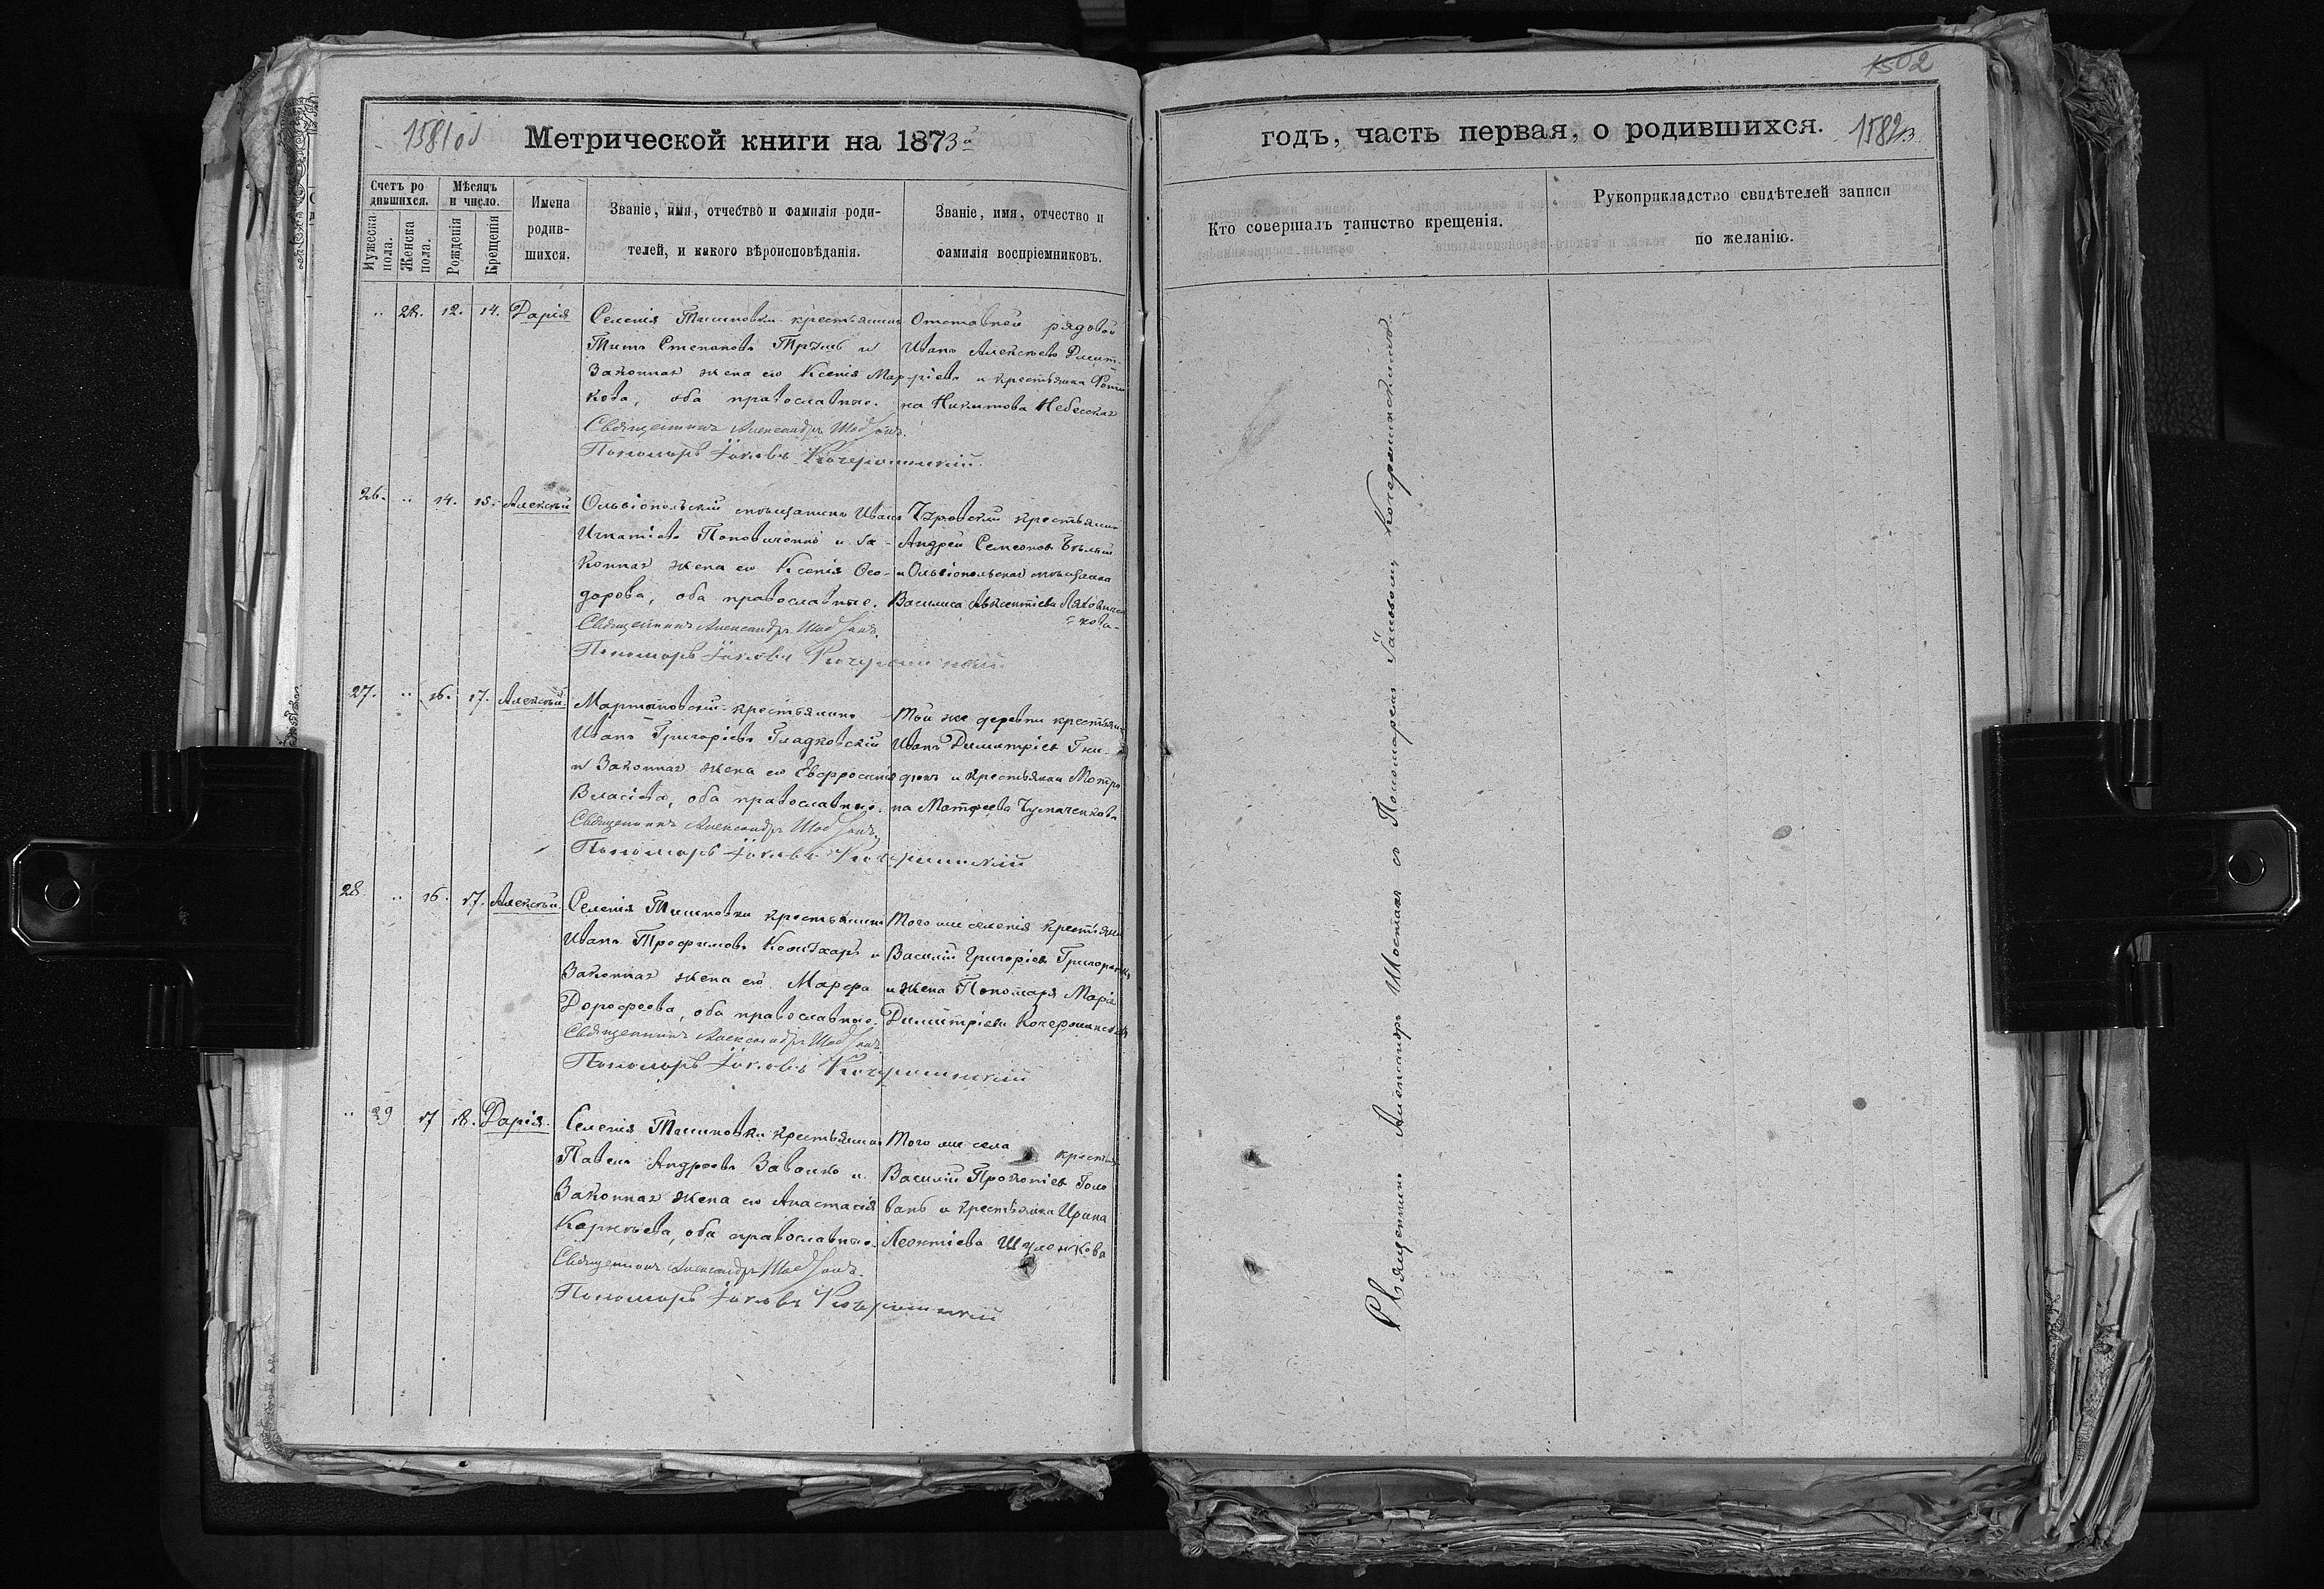 Метрической книги на 1873й
Счетъ родившихся.
Мужеска пола.
Женска пола.
Мѣсяцъ и число.
Рожденія
Крещенія
Имена родившихся.
Званіе, имя, отчество и фамилія родителей, и какого вѣроисповѣданія.
Званіе, имя, отчество и фамилія воспріемниковъ.
„ 28. 12. 14. Дарія
Селенія Тишковки крестьянинъ
Титъ Степановъ и
Законная жена его Ксенія Мар-
кова, оба православные.
Отставной рядовой
Иванъ Алексѣевъ
и крестьянка
Никитова Небесная
Священникъ Александръ
Пономарь Іаковъ Кочержинскій.
26. „ 14. 15. Алексѣй
Ольвіопольскій мѣщанинъ Иванъ
Игнатіевъ Поповиченко и за-
конная жена его Ксенія Ѳео-
дорова, оба православные.
крестьянинъ
Андрей Семеоновъ
и Ольвіопольская мѣщанка
Василиса Авксентіева
кова
Священникъ Александръ
Пономарь Іаковъ Кочержинскій
27. „ 16. 17. Алексѣй
Мартыновскій крестьянинъ
Иванъ Григоріевъ Гладковскій
и Законная жена его Евфросинія
Власіева, оба православные.
Той же деревни крестьянинъ
Иванъ Димитріевъ Гни-
и крестьянка Мотро
на Матѳеева Чумаченкова
Священникъ Александръ
Пономарь Іаковъ Кочержинскій
28 „ 16. 17. Алексѣй.
Селенія Тишковки крестьянинъ
Иванъ Трофимовъ и
Законная жена его Марфа
Дорофеева, оба православные.
Того же селенія крестьянинъ
Василій Григоріевъ
и жена Пономаря Марія
Димитріева Кочержинская
Священникъ Александръ
Пономарь Іаковъ Кочержинскій
„ 29 17 18. Дарія.
Селенія Тишковки крестьянинъ
Павелъ Андреевъ и
Законная жена его Анастасія
Корнѣева, оба православные.
Того же села крестьян
Василій Прокопіевъ Голо
ванъ и крестьянка Ирина
Леонтіева
Священникъ Александръ
Пономарь Іаковъ Кочержинскій
1502
годъ, часть первая, о родившихся.
Кто совершалъ таинство крещенія.
Рукоприкладство свидѣтелей записи по желанію.
Священникъ Александръ съ Пономаремъ Іаковомъ Кочержинскимъ.